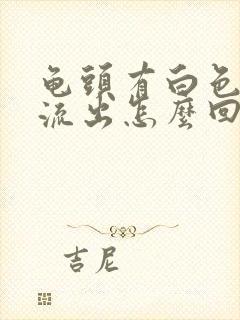 龟頭有白色
流出怎麼回
吉尼